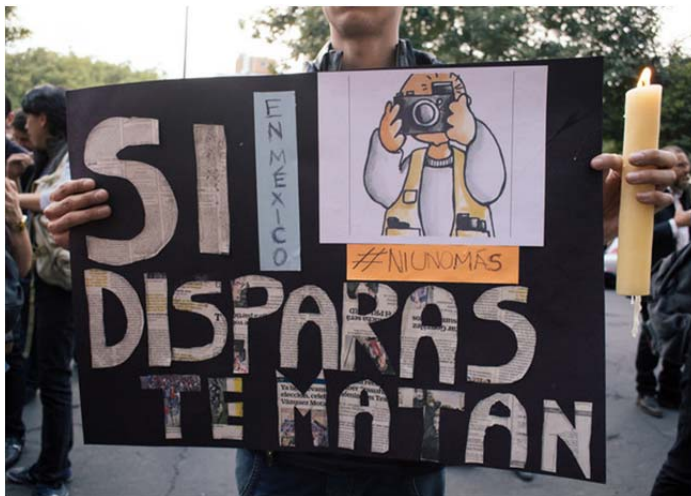 SI
EN MÉXICO
#NIUNOMÁS
DISPARAS
TE MATAN